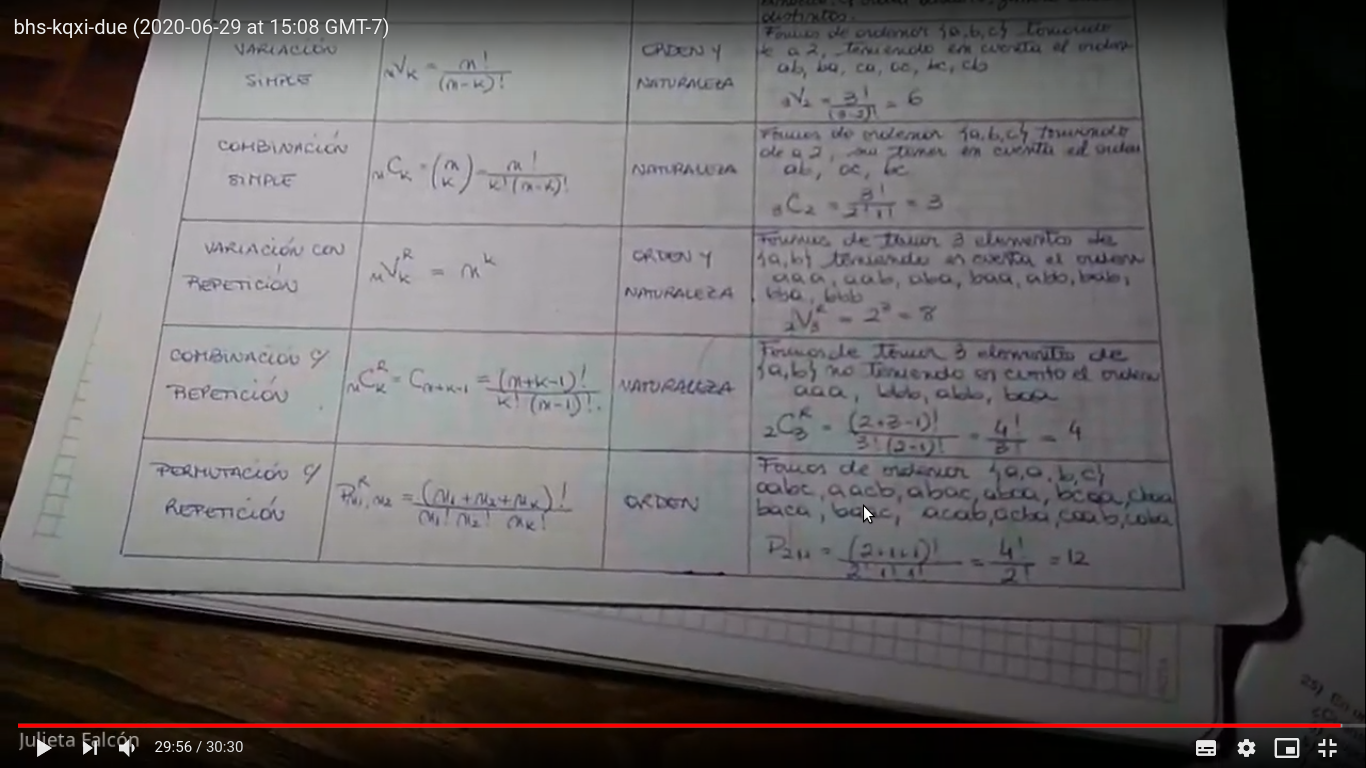 bhs-kqxi-due (2020-06-29 at 15:08 GMT-7)
distintos.
VARIACIÓN
SIMPLE
nVk = n! / (n-k)!
ORDEN Y
NATURALEZA
Formas de ordenar {a,b,c} tomando
de a 2, teniendo en cuenta el orden
ab, ba, ca, ac, bc, cb
3V2 = 3! / (3-2)! = 6
COMBINACIÓN
SIMPLE
nCk = (n k) = n! / k!(n-k)!
NATURALEZA
Formas de ordenar {a,b,c} tomando
de a 2, sin tener en cuenta el orden
ab, ac, bc
3C2 = 3! / 2!1! = 3
VARIACIÓN CON
REPETICIÓN
nVk^R = n^k
ORDEN Y
NATURALEZA
Formas de tomar 3 elementos de
{a,b} teniendo en cuenta el orden
aaa, aab, aba, baa, abb, bab,
bba, bbb
2V3^R = 2^3 = 8
COMBINACIÓN C/
REPETICIÓN
nCk^R = Cn+k-1 = (n+k-1)! / k!(n-1)!.
NATURALEZA
Formas de tomar 3 elementos de
{a,b} no teniendo en cuenta el orden
aaa, bbb, abb, baa
2C3^R = (2+3-1)! / 3!(2-1)! = 4! / 3! = 4
PERMUTACIÓN C/
REPETICIÓN
P^R n1,n2 = (n1+n2+nk)! / n1! n2! nk!
ORDEN
Formas de ordenar {a,a,b,c}
aabc, aacb, abac, abca, bcaa, cbaa
baca, baac, acab, acba, caab, caba
P211 = (2+1+1)! / 2!1!1! = 4! / 2! = 12
25)
Julieta Falcón
29:56 / 30:30